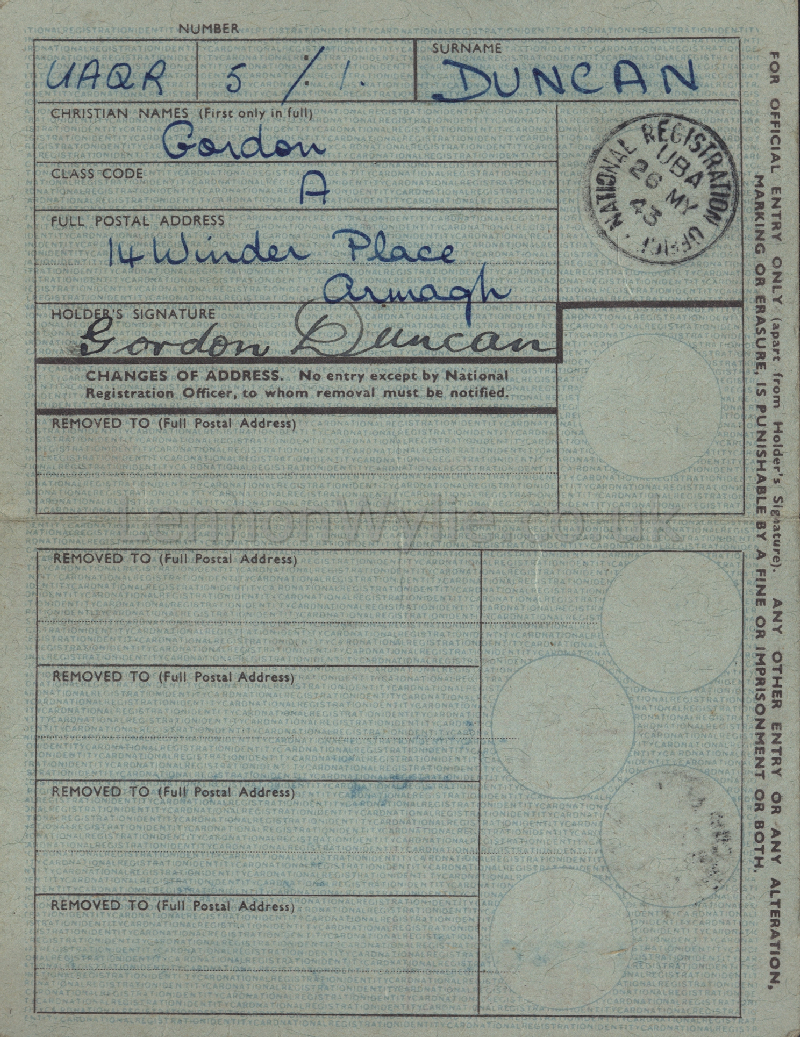 NUMBER
UAQR 5 / 1.
SURNAME
DUNCAN
CHRISTIAN NAMES (First only in full)
Gordon
CLASS CODE
A
FULL POSTAL ADDRESS
14 Winder Place
Armagh
NATIONAL REGISTRATION OFFICE
UBA
26 MY
43
HOLDER'S SIGNATURE
Gordon Duncan
CHANGES OF ADDRESS. No entry except by National
Registration Officer, to whom removal must be notified.
REMOVED TO (Full Postal Address)
LennonWylie.co.uk
REMOVED TO (Full Postal Address)
REMOVED TO (Full Postal Address)
REMOVED TO (Full Postal Address)
REMOVED TO (Full Postal Address)
FOR OFFICIAL ENTRY ONLY (apart from Holder's Signature). ANY OTHER ENTRY OR ANY ALTERATION,
MARKING OR ERASURE, IS PUNISHABLE BY A FINE OR IMPRISONMENT OR BOTH.